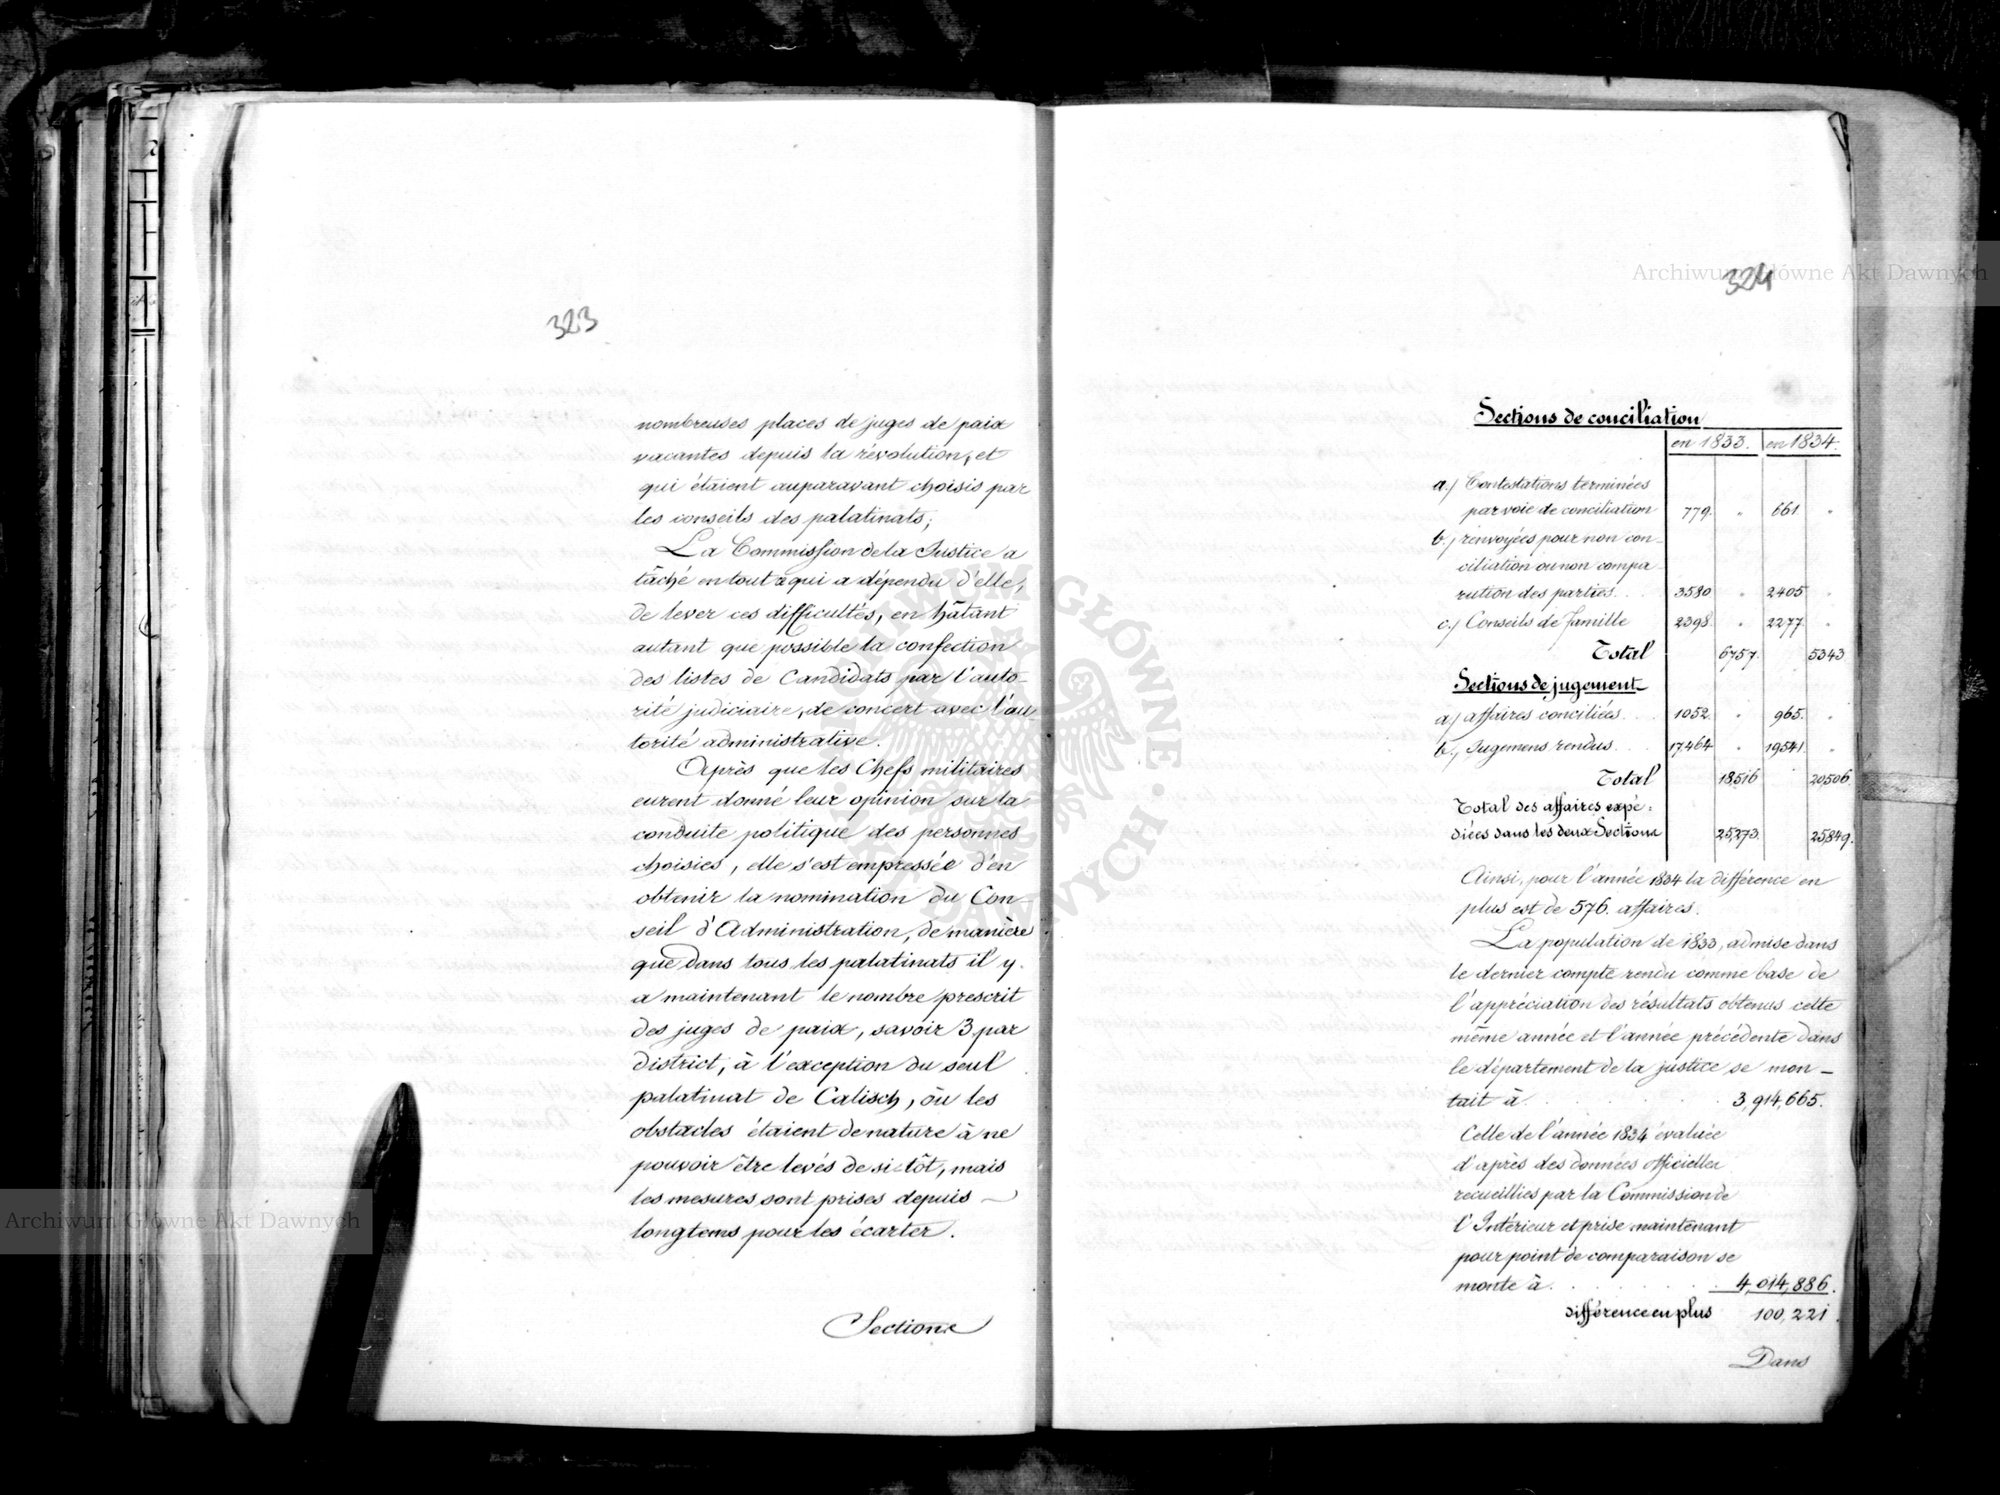 323
nombreuses places de juges de paix
vacantes depuis la révolution, et
qui étaient auparavant choisis par
les conseils des palatinats;
La Commission de la Justice a
tâché en tout ce qui a dépendu d'elle,
de lever ces difficultés, en hâtant
autant que possible la confection
des listes de Candidats par l'auto-
rité judiciaire, de concert avec l'au-
torité administrative.
Après que les Chefs militaires
eurent donné leur opinion sur la
conduite politique des personnes
choisies, elle s'est empressée d'en
obtenir la nomination du Con-
seil d'Administration, de manière
que dans tous les palatinats il y
a maintenant le nombre prescrit
des juges de paix, savoir 3 par
district, à l'exception du seul
palatinat de Calisch, où les
obstacles étaient de nature à ne
pouvoir être levés de si-tôt, mais
les mesures sont prises depuis
longtems pour les écarter.
Sections
324
Sections de conciliation
en 1833. en 1834.
a.) Contestations terminées
par voie de conciliation 779. " 661. "
b.) renvoyées pour non con-
ciliation ou non compa-
rution des parties. . 3580 " 2405 "
c.) Conseils de famille 2398. " 2277 "
Total 6757. 5343
Sections de jugement
a.) affaires conciliées. . . 1052. " 965. "
b.) Jugemens rendus. . . 17,464 " 19,541. "
Total 18,516 20,506.
Total des affaires expé-
diées dans les deux Sections 25,273. 25,849.
Ainsi, pour l'année 1834 la différence en
plus est de 576. affaires.
La population de 1833, admise dans
le dernier compte rendu comme base de
l'appréciation des résultats obtenus cette
même année et l'année précédente dans
le département de la justice se mon-
tait à . . . . . 3,914,665.
Celle de l'année 1834 évaluée
d'après des données officielles
recueillies par la Commission de
l'Intérieur et prise maintenant
pour point de comparaison se
monte à . . . . . 4,014,886.
différence en plus 100,221.
Dans
Archiwum Główne Akt Dawnych
Archiwum Główne Akt Dawnych
ARCHIWUM GŁÓWNE · AKT DAWNYCH ·